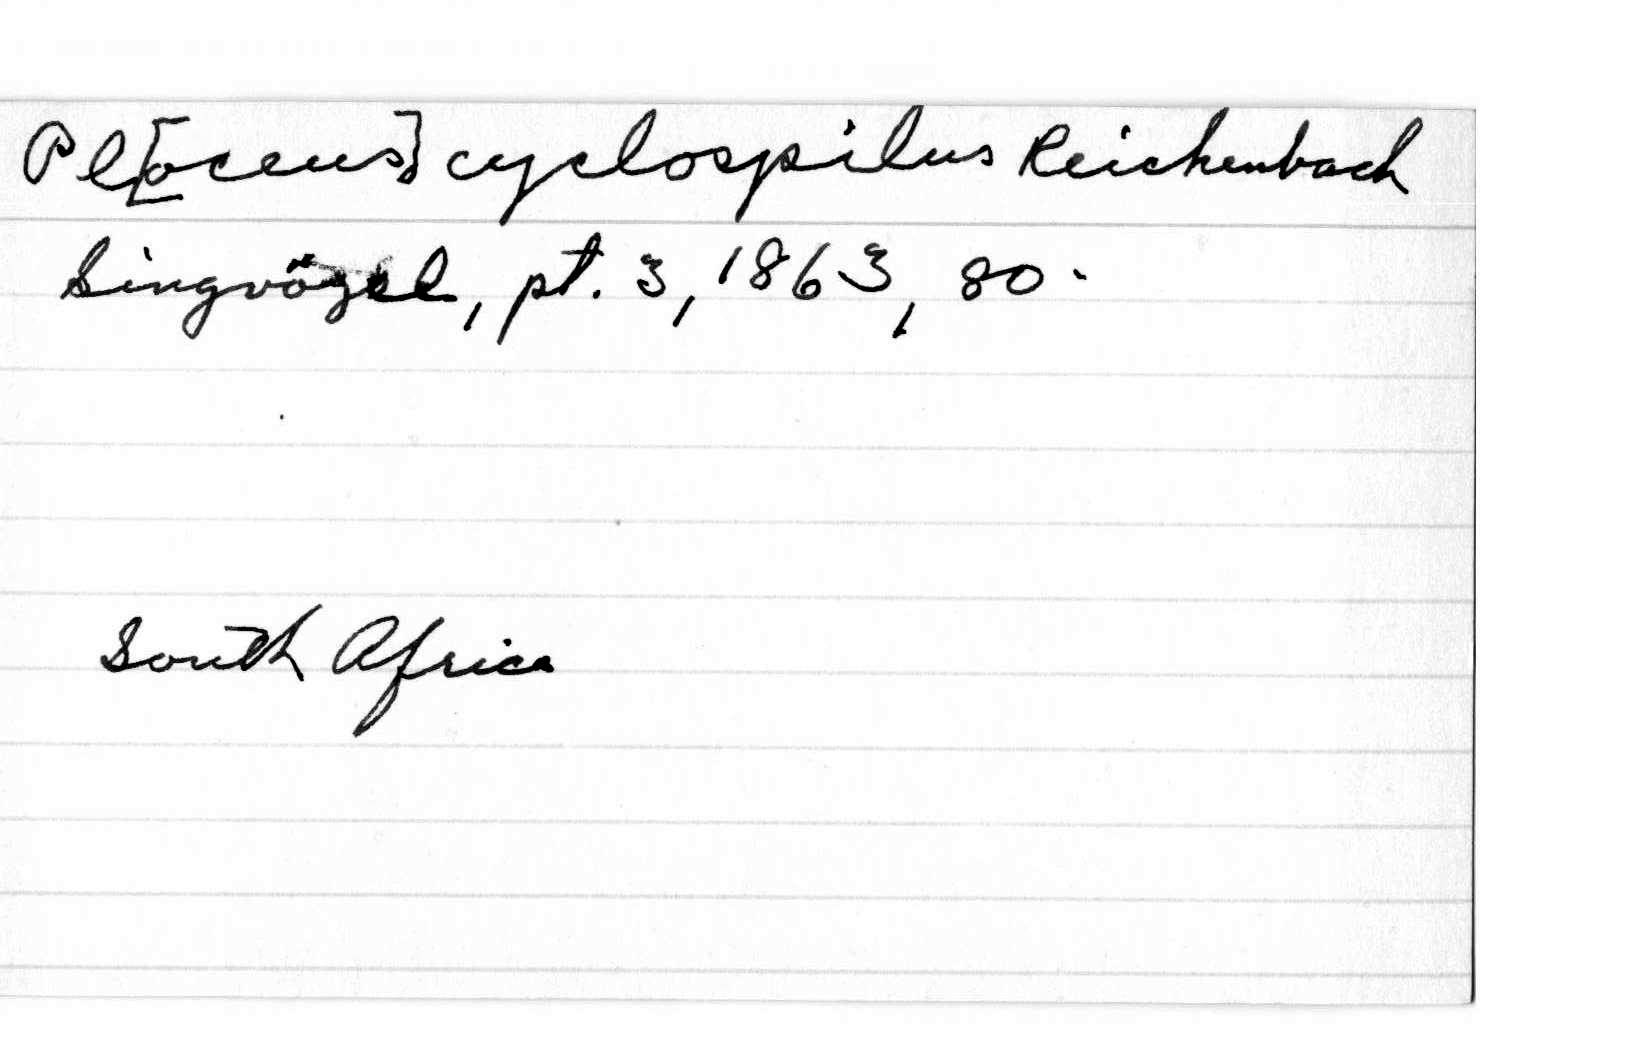 Pl[oceus] cyclospilus Reichenbach
Singvögel, pt. 3, 1863, 80.
South Africa